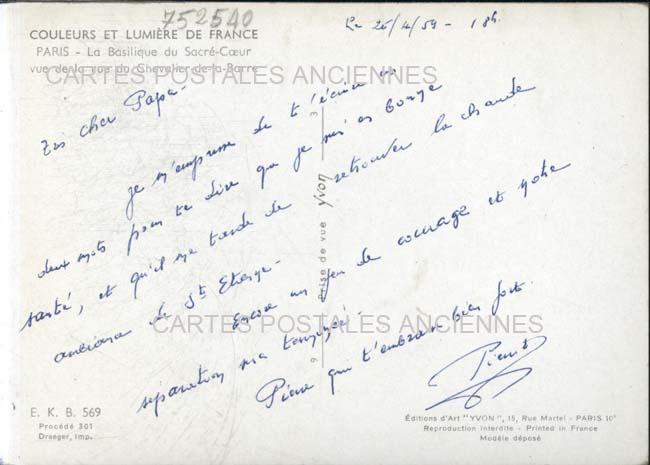 752540
COULEURS ET LUMIÈRE DE FRANCE
PARIS - La Basilique du Sacré-Cœur
vue de la rue du Chevalier-de-la-Barre
Le 26/4/59 - 18h.
CARTES POSTALES ANCIENNES
Très cher Papa -
Je m'empresse de t'écrire ces
deux mots pour te dire que je suis en bonne
santé, et qu'il me tarde de retrouver la chaude
ambiance de St Etienne -
Encore un peu de courage et notre
séparation sera terminée -
Pierre qui t'embrasse bien fort.
CARTES POSTALES ANCIENNES
9 Prise de vue yvon 3
E. K. B. 569
Procédé 301
Draeger, Imp.
Éditions d'Art "YVON", 15, Rue Martel - PARIS 10e
Reproduction interdite - Printed in France
Modèle déposé